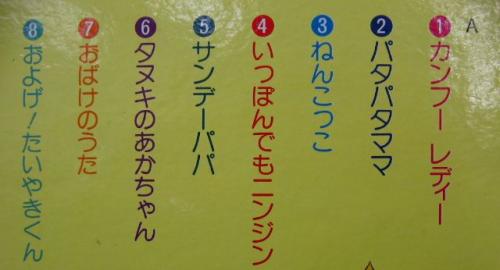 A
1 カンフー レディー
2 パタパタママ
3 ねんこつこ
4 いっぽんでもニンジン
5 サンデーパパ
6 タヌキのあかちゃん
7 おばけのうた
8 およげ!たいやきくん